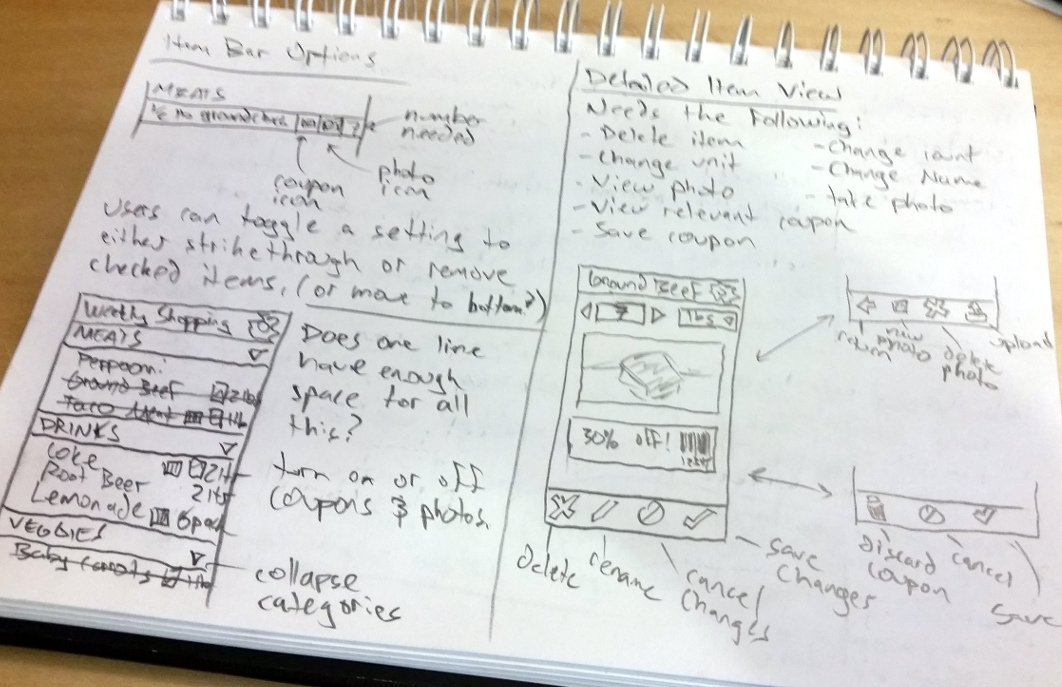 Item Bar Options
MEATS
number
needed
coupon
icon
photo
icon
Users can toggle a setting to
either strikethrough or remove
checked items. (or move to bottom?)
Weekly Shopping
MEATS
Pepperoni
Ground Beef 2 lbs
Taco Meat 1 lb
DRINKS
Coke 2 ltr
Root Beer 2 ltr
Lemonade 6 pack
VEGGIES
Baby Carrots 1 lb
Does one line
have enough
space for all
this?
turn on or off
coupons & photos.
collapse
categories
Detailed Item View
Needs the Following:
- Delete item
- Change unit
- View photo
- View relevant coupon
- Save coupon
- Change
- Change Name
- take photo
Ground Beef
lbs
30% off!
delete
rename
cancel
changes
save
changes
return
new
photo
delete
photo
upload
discard
coupon
cancel
save